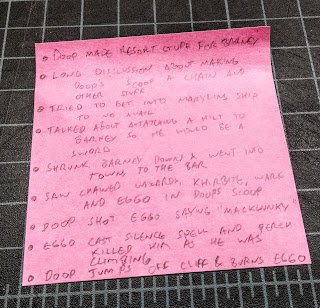 • DOOP MADE RESORT STUFF FOR BARNEY
• LONG DISCUSSION ABOUT MAKING
DOOPS SCOOP A CHAIN AND
OTHER STUFF
• TRIED TO GET INTO SHIP
TO NO AVAIL
• TALKED ABOUT ATTATCHING A HILT TO
BARNEY SO HE WOULD BE A
SWORD
• SHRUNK BARNEY DOWN & WENT INTO
TOWN, TO THE BAR
• SAW CHAWED LIZARDS, KHIRBITE, WARG
AND EGGO IN DOOPS SCOOP
• DOOP SHOT EGGO SAYING "MACKWINKY"
• EGGO CAST SILENCE SPELL AND GERCH
KILLED HIM AS HE WAS
CLIMBING
• DOOP JUMPS OFF CLIFF & BURNS EGGO